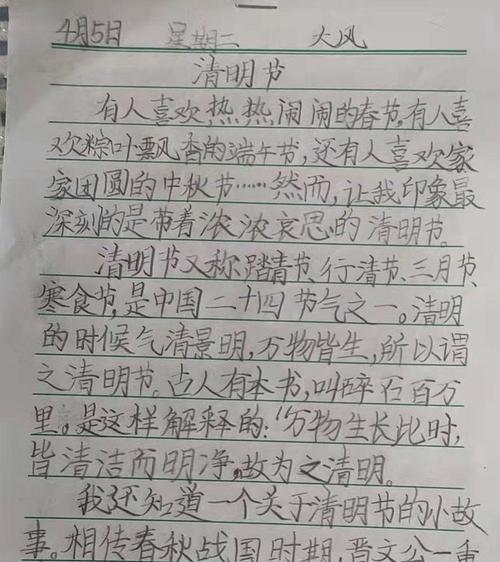 4月5日 星期二 大风
清明节
有人喜欢热热闹闹的春节,有人喜
欢粽叶飘香的端午节,还有人喜欢家
家团圆的中秋节……然而,让我印象最
深刻的是带着浓浓哀思的清明节。
清明节又称踏青节、行清节、三月节、
寒食节,是中国二十四节气之一。清明
的时候气清景明,万物皆生,所以谓
之清明节。占人有本书,叫碎石百万
里。是这样解释的:“万物生长比时,
皆清洁而明净,故为之清明。
我还知道一个关于清明节的小故
事。相传春秋战国时期,晋文公一重